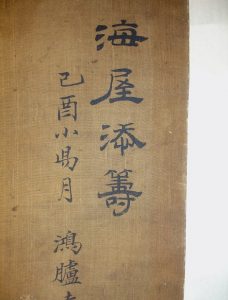 海屋添籌
己酉小昜月 鴻臚